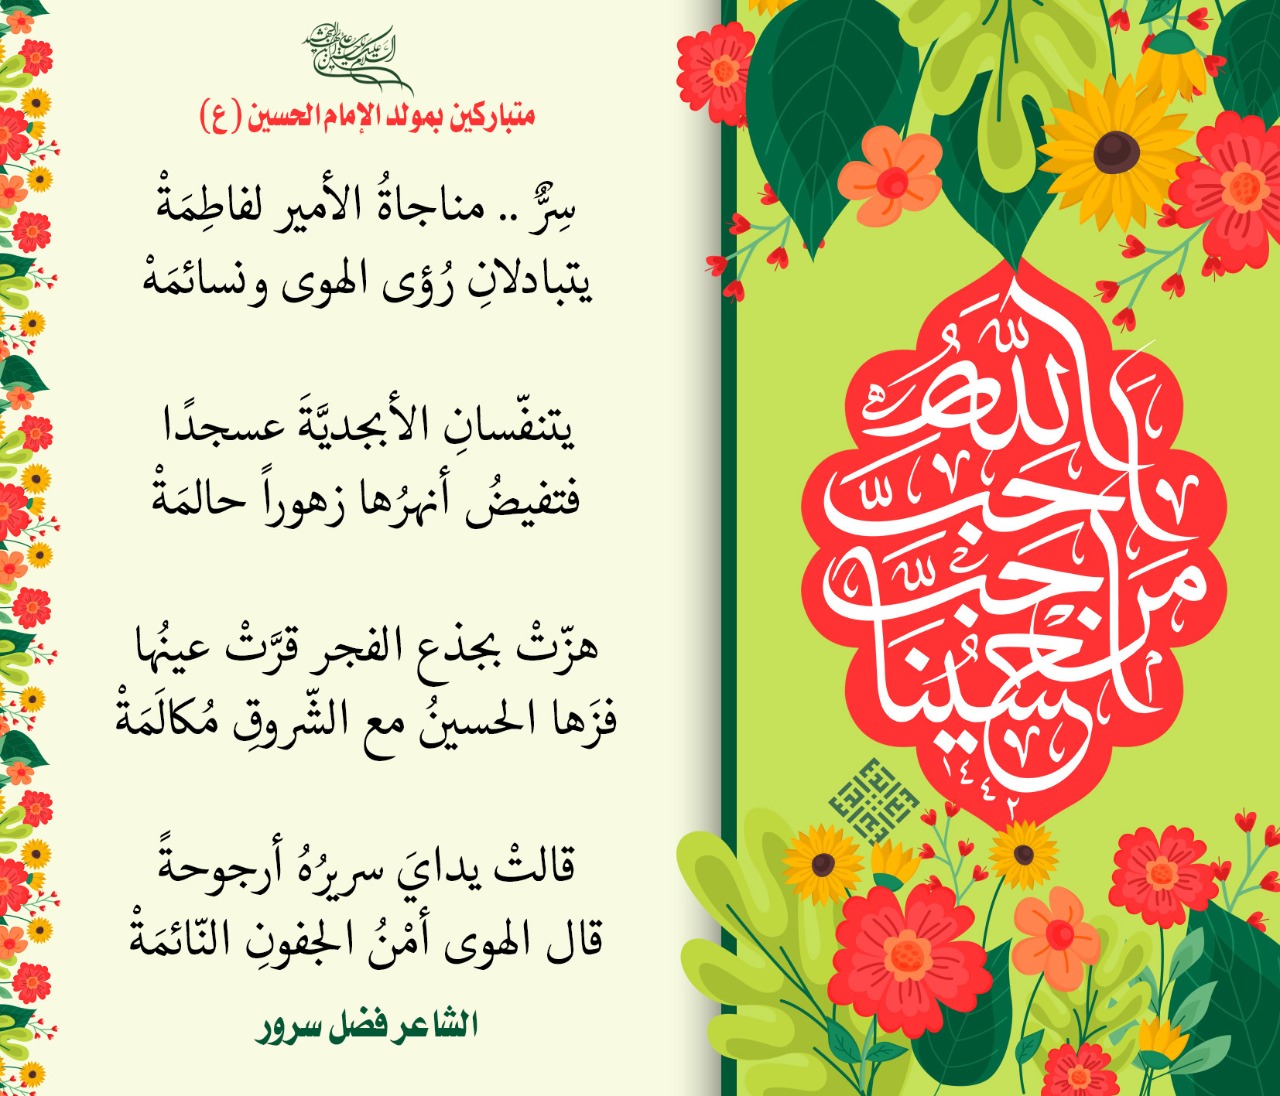 السلام عليك يا أبا عبد الله الحسين الشهيد
متباركين بمولد الإمام الحسين (ع)
سِرٌّ .. مناجاةُ الأمير لفاطِمَةْ
يتبادلانِ رُؤى الهوى ونسائمَهْ
يتنفّسانِ الأبجديَّةَ عسجدًا
فتفيضُ أنهرُها زهوراً حالمَةْ
هزّتْ بجذع الفجر قرَّتْ عينُها
فزَها الحسينُ مع الشّروقِ مُكالَمَةْ
قالتْ يدايَ سريرُهُ أرجوحةً
قال الهوى أمْنُ الجفونِ النّائمَةْ
الشاعر فضل سرور
أحبَّ اللّٰهُ
من أحبَّ
حسينا
١٤٤٢